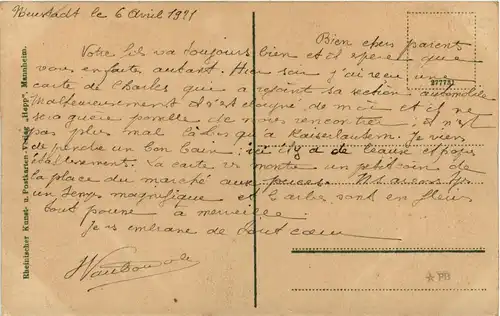 Neustadt le 6 Avril 1921
Bien chers parents
Votre fils va toujours bien et il espère que
vous en faites autant. Hier soir j'ai reçu une
carte de Charles qui a rejoint sa section automobile
Malheureusement il s'est éloigné de moi et il n'y
sera guère possible de nous rencontrer; il n'est
pas plus mal là-bas qu'à Kaiserlautern. Je viens
de prendre un bon bain: ici il y a de beaux et bons
établissements. La carte ci montre un petit coin de
la place du marché aux Nous avons
un temps magnifique et l'arbre sont en fleurs
tout pousse à merveille.
Je vs embrasse de tout cœur
277731
Rheinischer Kunst- u. Postkarten-Verlag „Hepp“ Mannheim.
PB